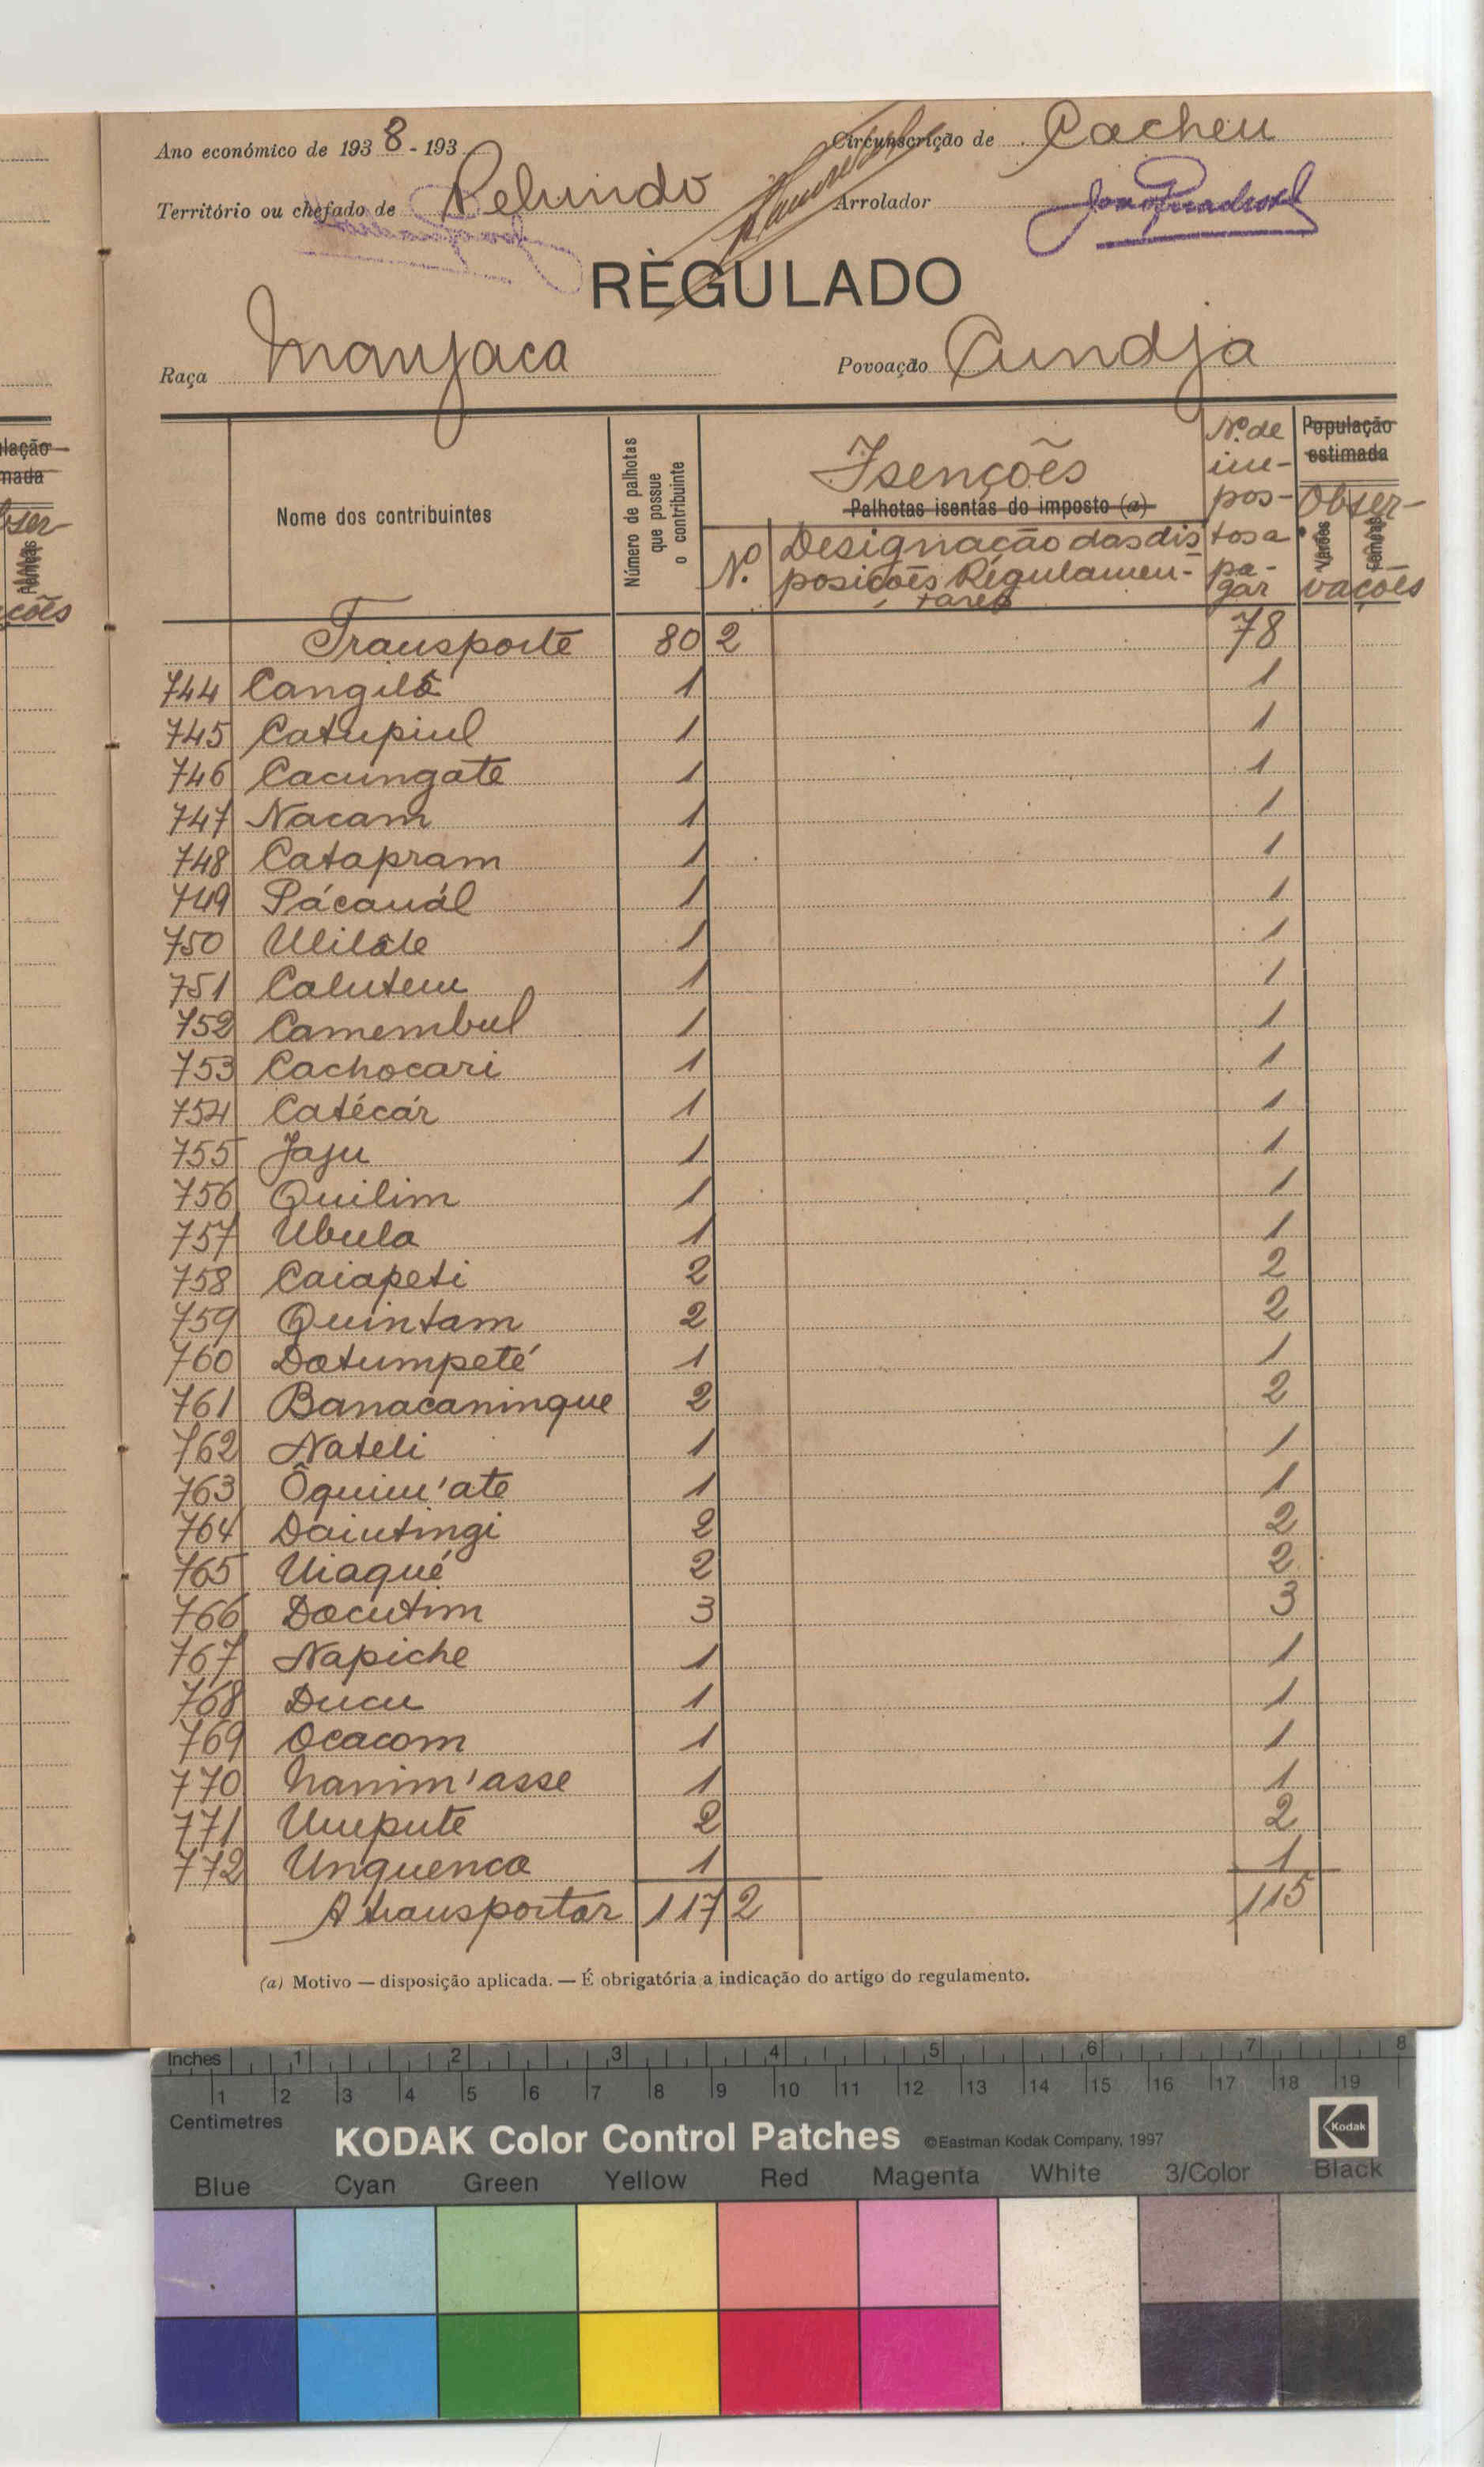 Ano económico de 1938-193
Circunscrição de Cacheu
Território ou chefado de Pelundo
Arrolador
RÈGULADO
Raça Manjaca
Povoação Cundja
Nome dos contribuintes
Número de palhotas que possue o contribuinte
Isenções
Palhotas isentas do imposto (a)
N.º
Designação das disposições Régulamentares
N.º de impostos a pagar
População estimada
Observações
Varões
Fêmeas
Transporte 80 2 78
744 Cangilô 1 1
745 Catupiul 1 1
746 Cacungate 1 1
747 Nacam 1 1
748 Catapram 1 1
749 Pácauál 1 1
750 Uilále 1 1
751 Calutem 1 1
752 Camembul 1 1
753 Cachocari 1 1
754 Catécár 1 1
755 Jaju 1 1
756 Quilim 1 1
757 Ubula 1 1
758 Caiapeti 2 2
759 Quintam 2 2
760 Datumpeté 1 1
761 Banacaninque 2 2
762 Nateli 1 1
763 Ôquim'ate 1 1
764 Daintingi 2 2
765 Uiaqué 2 2
766 Dacutim 3 3
767 Napiche 1 1
768 Ducu 1 1
769 Ocacom 1 1
770 Nanim'asse 1 1
771 Umpute 2 2
772 Unquenca 1 1
A transportar 117 2 115
(a) Motivo — disposição aplicada. — É obrigatória a indicação do artigo do regulamento.
Inches 1 2 3 4 5 6 7 8
1 2 3 4 5 6 7 8 9 10 11 12 13 14 15 16 17 18 19
Centimetres
KODAK Color Control Patches ©Eastman Kodak Company, 1997 Kodak
Blue Cyan Green Yellow Red Magenta White 3/Color Black